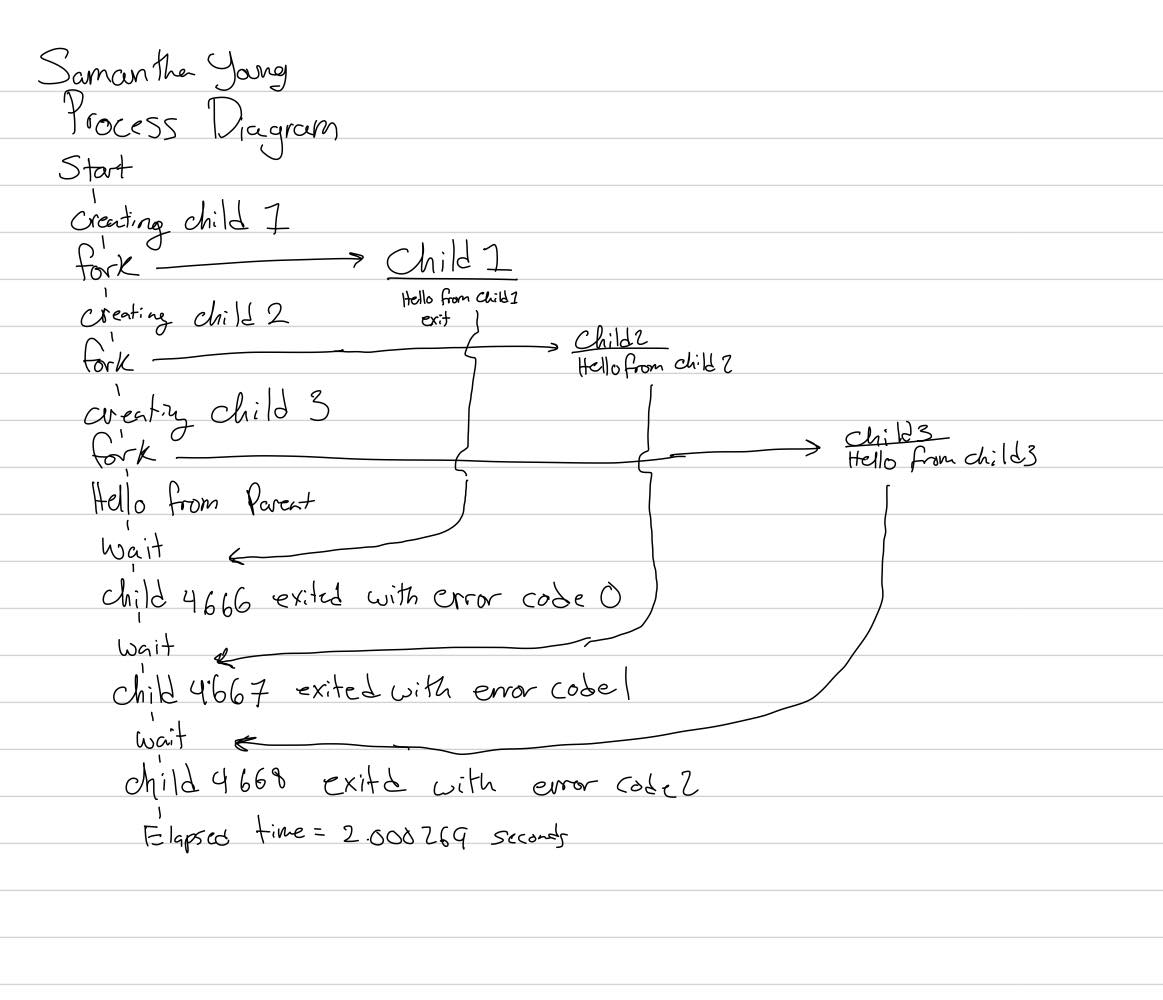 Samantha Yang
Process Diagram
Start
creating child 1
fork
Child 1
Hello from Child1
exit
creating child 2
fork
Child2
Hello from child 2
creating child 3
fork
Child3
Hello from child3
Hello from Parent
wait
child 4666 exited with error code 0
wait
child 4667 exited with error code 1
wait
child 4668 exitd with error code 2
Elapsed time = 2.000269 seconds